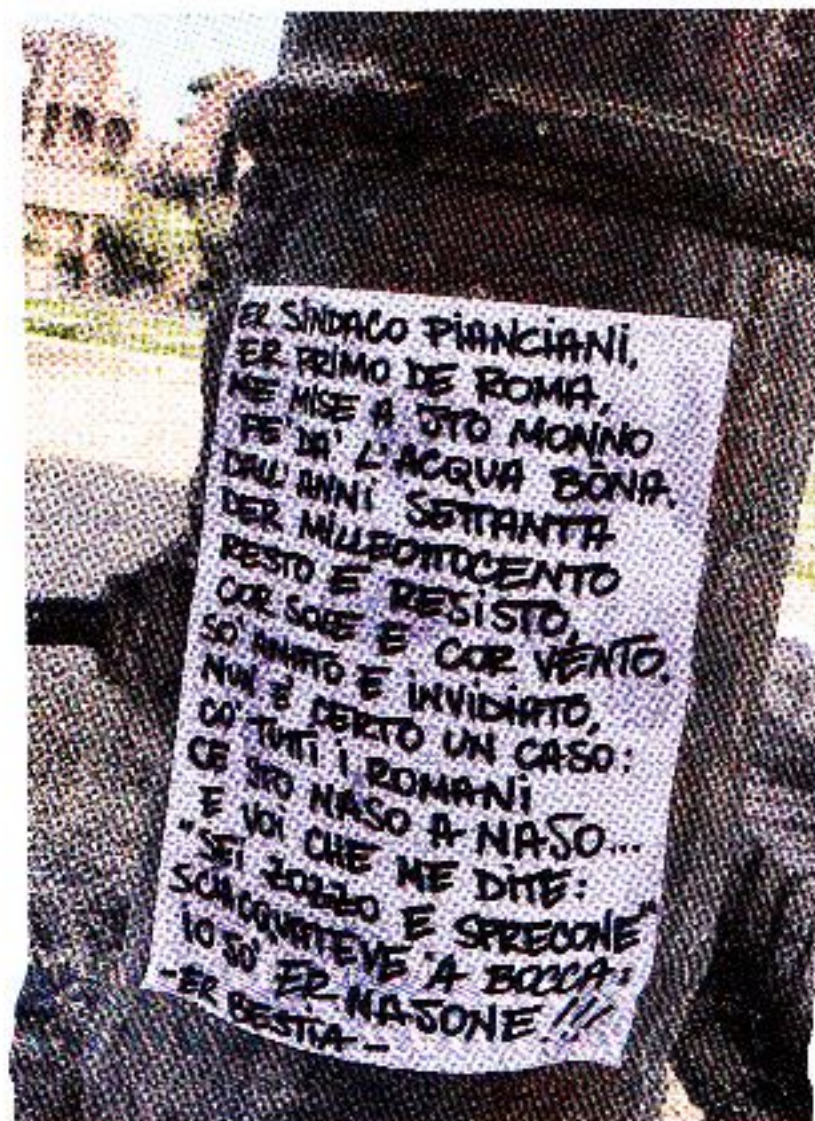 ER SINDACO PIANCIANI,
ER PRIMO DE ROMA,
ME MISE A STO MONNO
PE' DA' L'ACQUA BÔNA.
DALL'ANNI SETTANTA
DER MILLEOTTOCENTO
RESTO E RESISTO,
COR SOLE E COR VÈNTO.
SO' AMATO E INVIDIATO,
NUN È CERTO UN CASO:
CO' TUTTI I ROMANI
CE STO NASO A NASO...
E VOI CHE ME DITE:
"SEI ZOZZO E SPRECONE"
SCIACQUATEVE 'A BOCCA:
IO SO' ER NASONE!!!
-ER BESTIA-